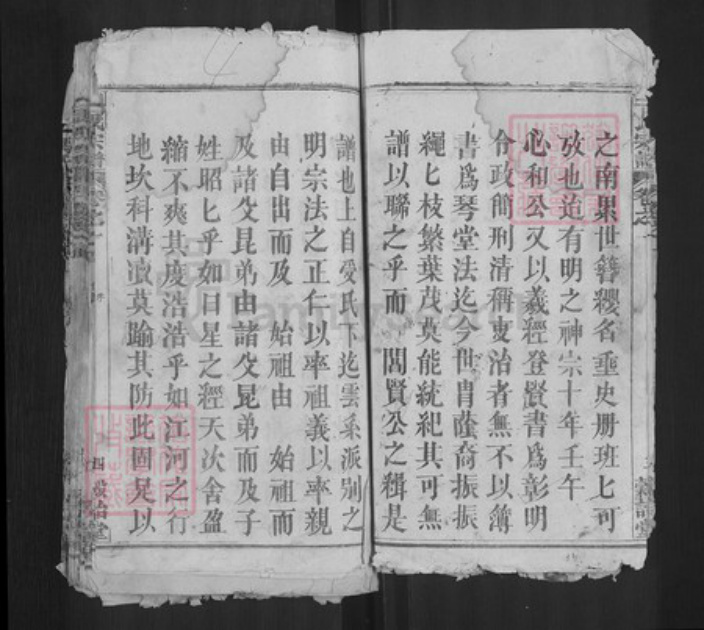 之南累世簪纓名垂史册班匕可
攷也迨有明之神宗十年壬午
心和公又以羲經登賢書爲彰明
令政簡刑清稱吏治者無不以簿
書爲琴堂法迄今世胄蔭裔振振
繩匕枝繁葉茂莫能統紀其可無
譜以聯之乎而 閣賢公之緝是
譜也上自受氏下迄雲系派别之
明宗法之正仁以率祖義以率親
由自出而及 始祖由 始祖而
及諸父昆弟由諸父昆弟而及子
姓昭匕乎如日星之經天次舍盈
縮不爽其度浩浩乎如江河之行
地坎科溝澮莫踰其防此固足以
四